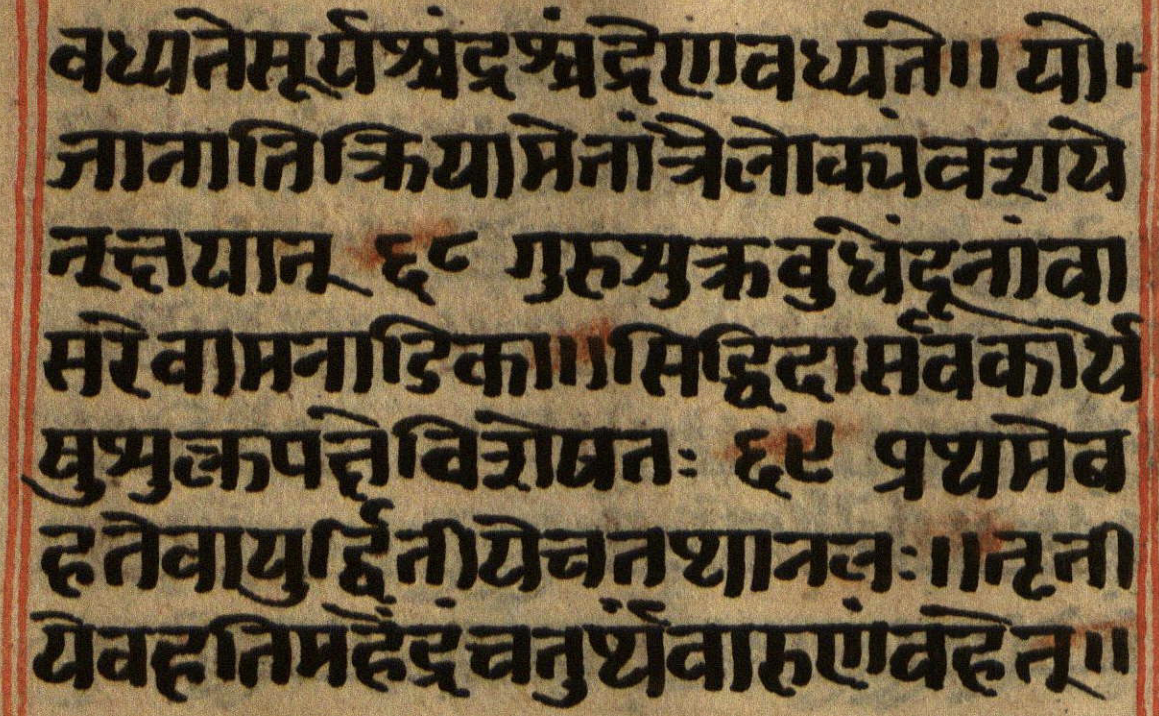 वध्यतेसूर्यश्चंद्रश्चंद्रेणवध्यते॥ यो।
जानातिक्रियामेतांत्रैलोक्यंवशये
त्क्षयात् ६८ गुरुशुक्रवुधेंदूनांवा
सरेवामनाडिका॥।सिद्धिदासर्वकार्ये
षुशुक्लपक्षेविशेषतः ६९ प्रथमेव
हतेवायुर्द्वितीयेचतथानलः॥तृती
येवहतिमहेंद्रंचतुर्थेवारुणंवहेत्॥